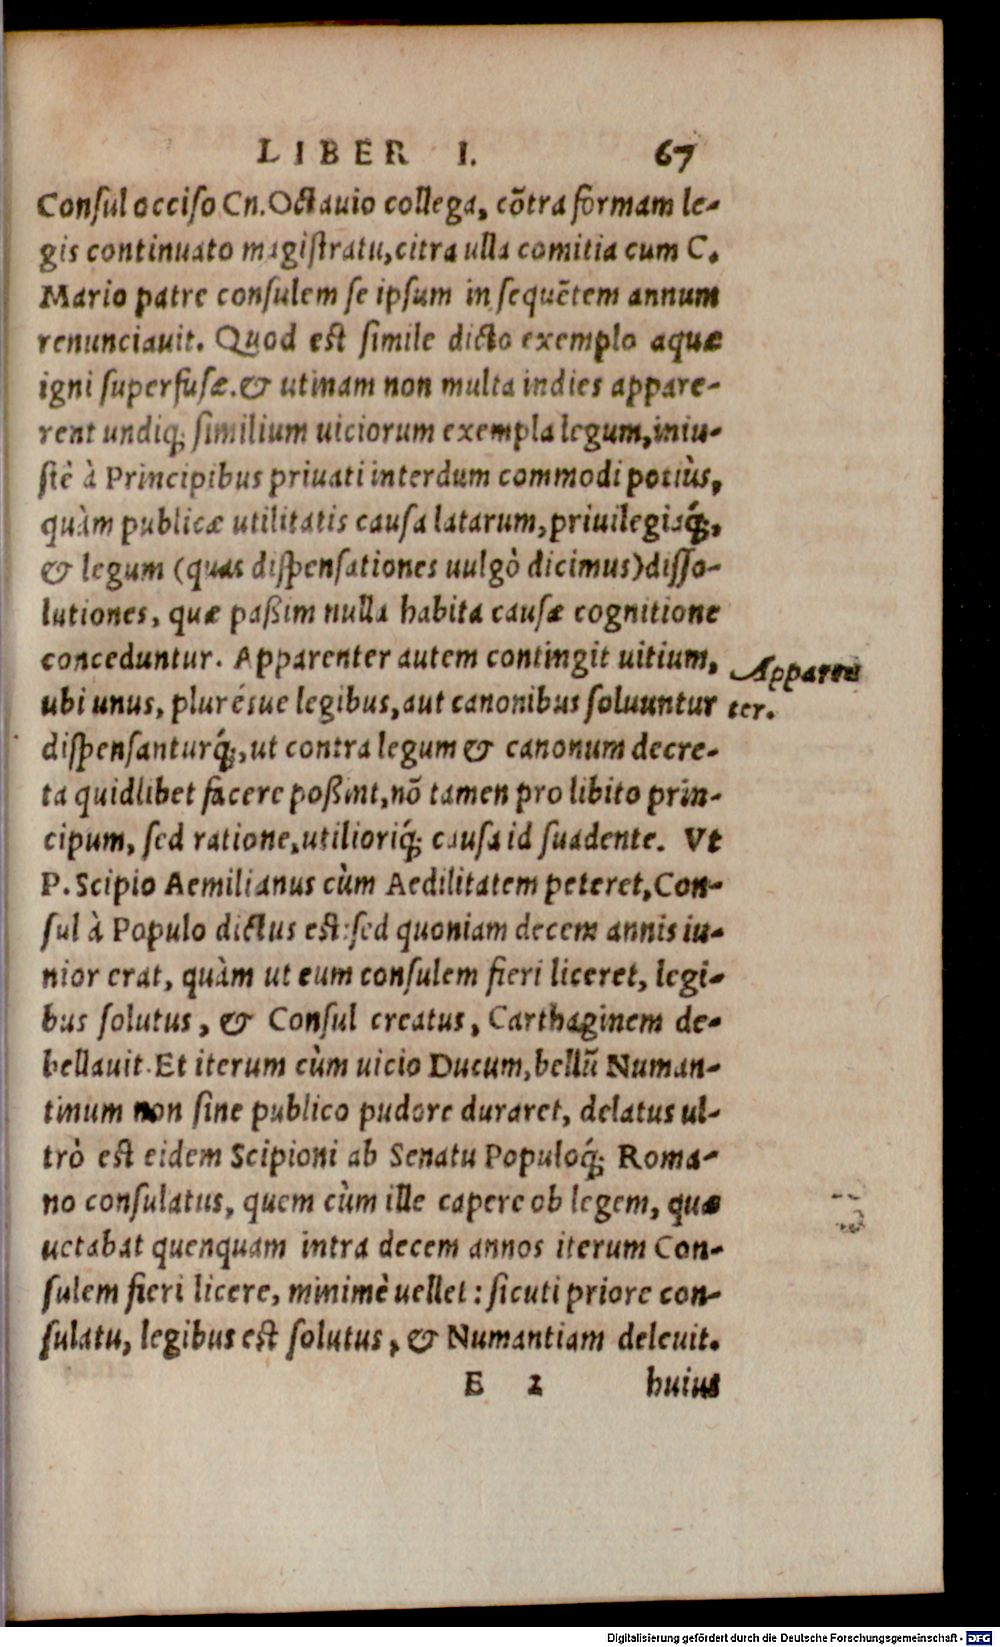 LIBER I. 67
Conſul occiſo Cn. Octauio collega, cõtra formam le-
gis continuato magiſtratu, citra ulla comitia cum C.
Mario patre conſulem ſe ipſum in ſequẽtem annum
renunciauit. Quod eſt ſimile dicto exemplo aquæ
igni superfuſæ. & utinam non multa indies appare-
rent undiq; ſimilium uiciorum exempla legum, iniu-
ſtè à Principibus priuati interdum commodi potiùs,
quàm publicæ utilitatis cauſa latarum, priuilegiaq́;,
& legum (quas diſpenſationes uulgò dicimus) diſſo-
lutiones, quæ paßim nulla habita cauſæ cognitione
conceduntur. Apparenter autem contingit uitium,
Apparen
ubi unus, pluréſue legibus, aut canonibus ſoluuntur
ter.
diſpenſanturq́;, ut contra legum & canonum decre-
ta quidlibet facere poßint, nõ tamen pro libito prin-
cipum, ſed ratione, utilioriq́; cauſa id ſuadente. Vt
P. Scipio Aemilianus cùm Aedilitatem peteret, Con-
ſul à Populo dictus eſt: ſed quoniam decem annis iu-
nior erat, quàm ut eum conſulem fieri liceret, legi-
bus ſolutus, & Conſul creatus, Carthaginem de-
bellauit. Et iterum cùm uicio Ducum, bellũ Numan-
tinum non ſine publico pudore duraret, delatus ul-
trò eſt eidem Scipioni ab Senatu Populoq́; Roma-
no conſulatus, quem cùm ille capere ob legem, quæ
uetabat quenquam intra decem annos iterum Con-
ſulem fieri licere, minimè uellet: ſicuti priore con-
ſulatu, legibus eſt ſolutus, & Numantiam deleuit.
E 2 huius
Digitalisierung gefördert durch die Deutsche Forschungsgemeinschaft - DFG